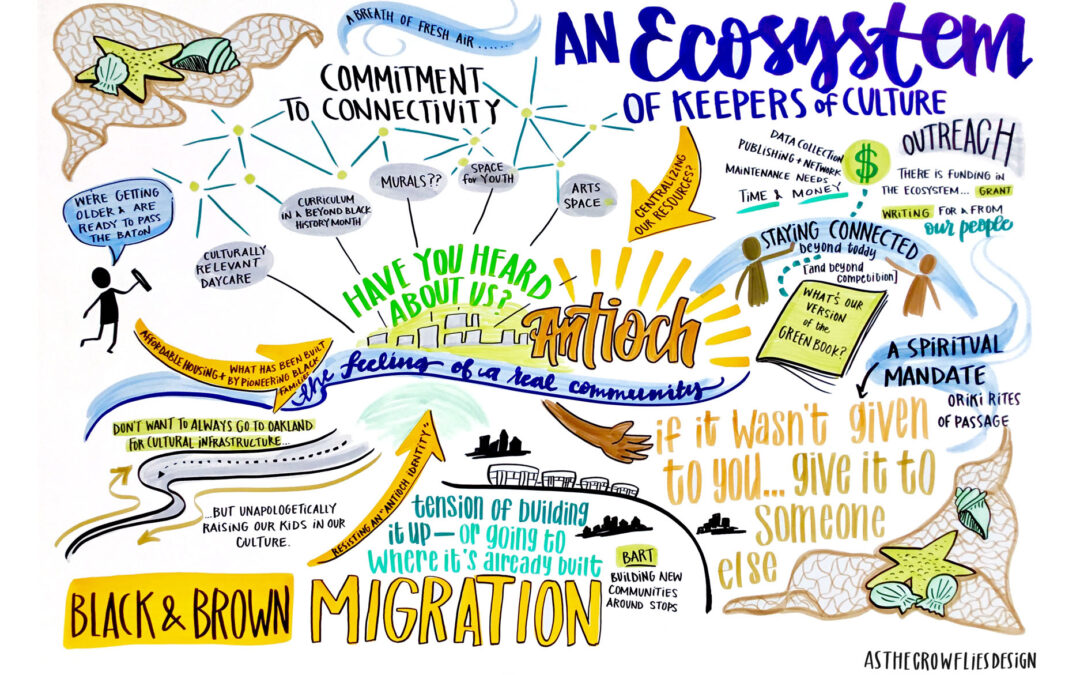 A BREATH OF FRESH AIR......
AN Ecosystem
OF KEEPERS of CULTURE
COMMITMENT
TO CONNECTIVITY
WE'RE GETTING
OLDER & ARE
READY TO PASS
THE BATON
CULTURALLY
RELEVANT
DAYCARE
CURRICULUM
IN A BEYOND BLACK
HISTORY MONTH
MURALS??
SPACE
for YOUTH
ARTS
SPACE
CENTRALIZING
OUR RESOURCES?
DATA COLLECTION
PUBLISHING + NETWORK
MAINTENANCE NEEDS
TIME & MONEY
$
OUTREACH
THERE IS FUNDING IN
THE ECOSYSTEM... GRANT
WRITING FOR & FROM
our people
STAYING CONNECTED
beyond today
[and beyond
competition]
WHAT'S OUR
VERSION
of the
GREEN BOOK?
HAVE YOU HEARD
ABOUT US?
Antioch
the feeling of a real community
AFFORDABLE HOUSING +
WHAT HAS BEEN BUILT
BY PIONEERING BLACK
FAMILIES
DON'T WANT TO ALWAYS GO TO OAKLAND
FOR CULTURAL INFRASTRUCTURE...
...BUT UNAPOLOGETICALLY
RAISING OUR KIDS IN OUR
CULTURE.
RESISTING AN "ANTIOCH IDENTITY"
tension of building
it up— or going to
where it's already built
BART
BUILDING NEW
COMMUNITIES
AROUND STOPS
A SPIRITUAL
MANDATE
ORIKI RITES
OF PASSAGE
if it wasn't given
to you... give it to
someone
else
BLACK & BROWN MIGRATION
ASTHECROWFLIESDESIGN